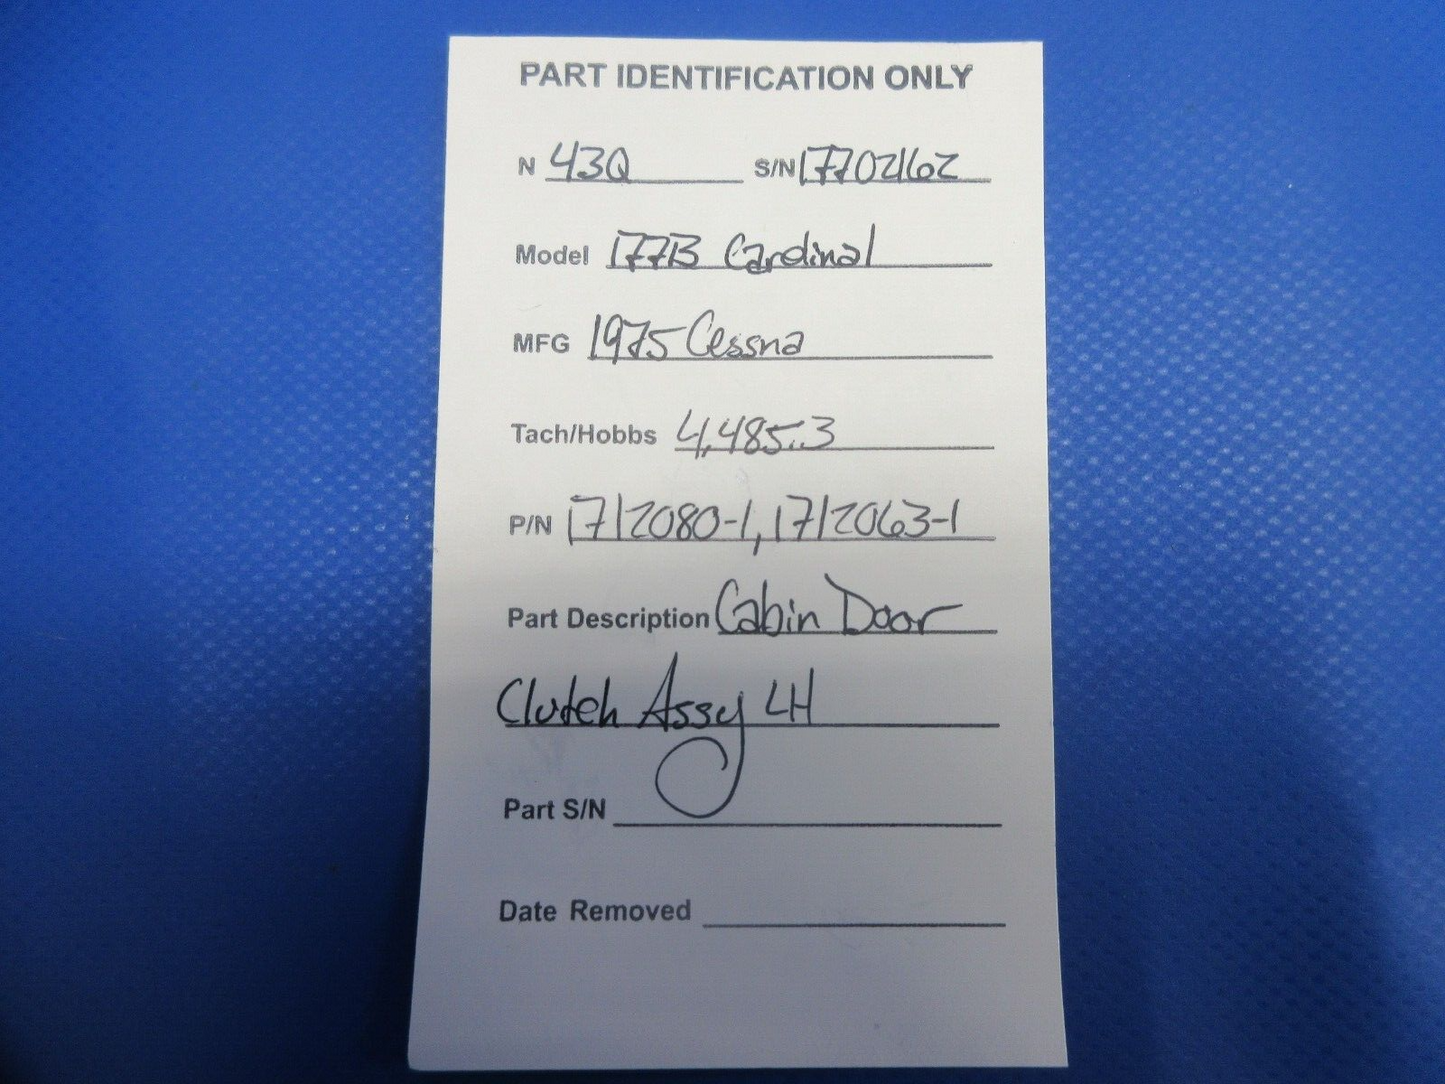 PART IDENTIFICATION ONLY
N 43Q S/N 17702162
Model 177B Cardinal
MFG 1975 Cessna
Tach/Hobbs 4,485.3
P/N 1712080-1, 1712063-1
Part Description Cabin Door
Clutch Assy LH
Part S/N
Date Removed